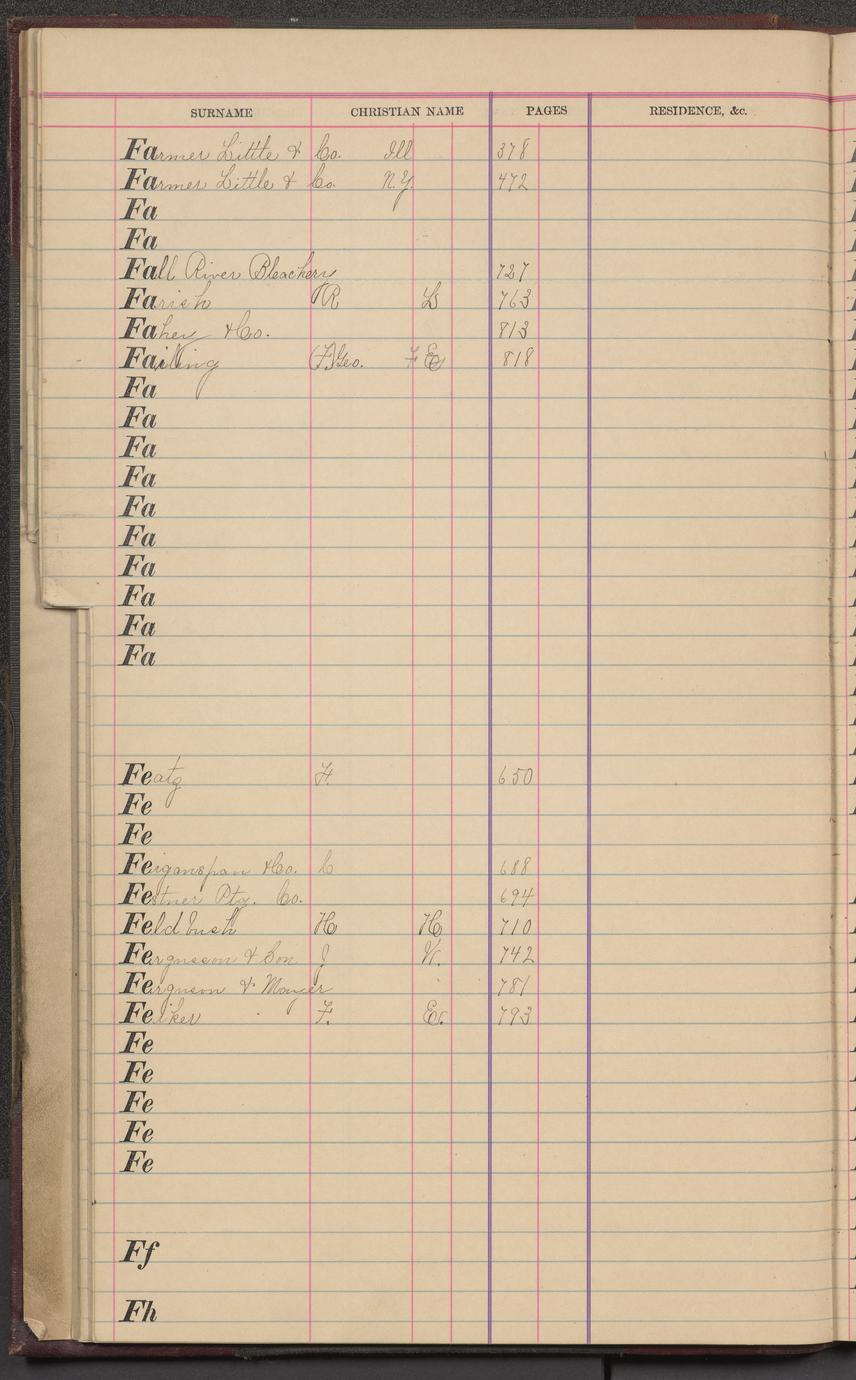 SURNAME CHRISTIAN NAME PAGES RESIDENCE, &c.
Farmer Little & Co. Ill 378
Farmer Little & Co. N.Y. 472
Fa
Fa
Fall River Bleachery 727
Farish R L 763
Fahey & Co. 813
Failing (F) Geo. F E 818
Fa
Fa
Fa
Fa
Fa
Fa
Fa
Fa
Fa
Fa
Featg F. 650
Fe
Fe
Feiganspan & Co. C 688
Festner Ptg. Co. 694
Feldbush H H 710
Fergusson & Son J W. 742
Ferguson & Mouger 781
Feiker F. E. 793
Fe
Fe
Fe
Fe
Fe
Ff
Fh